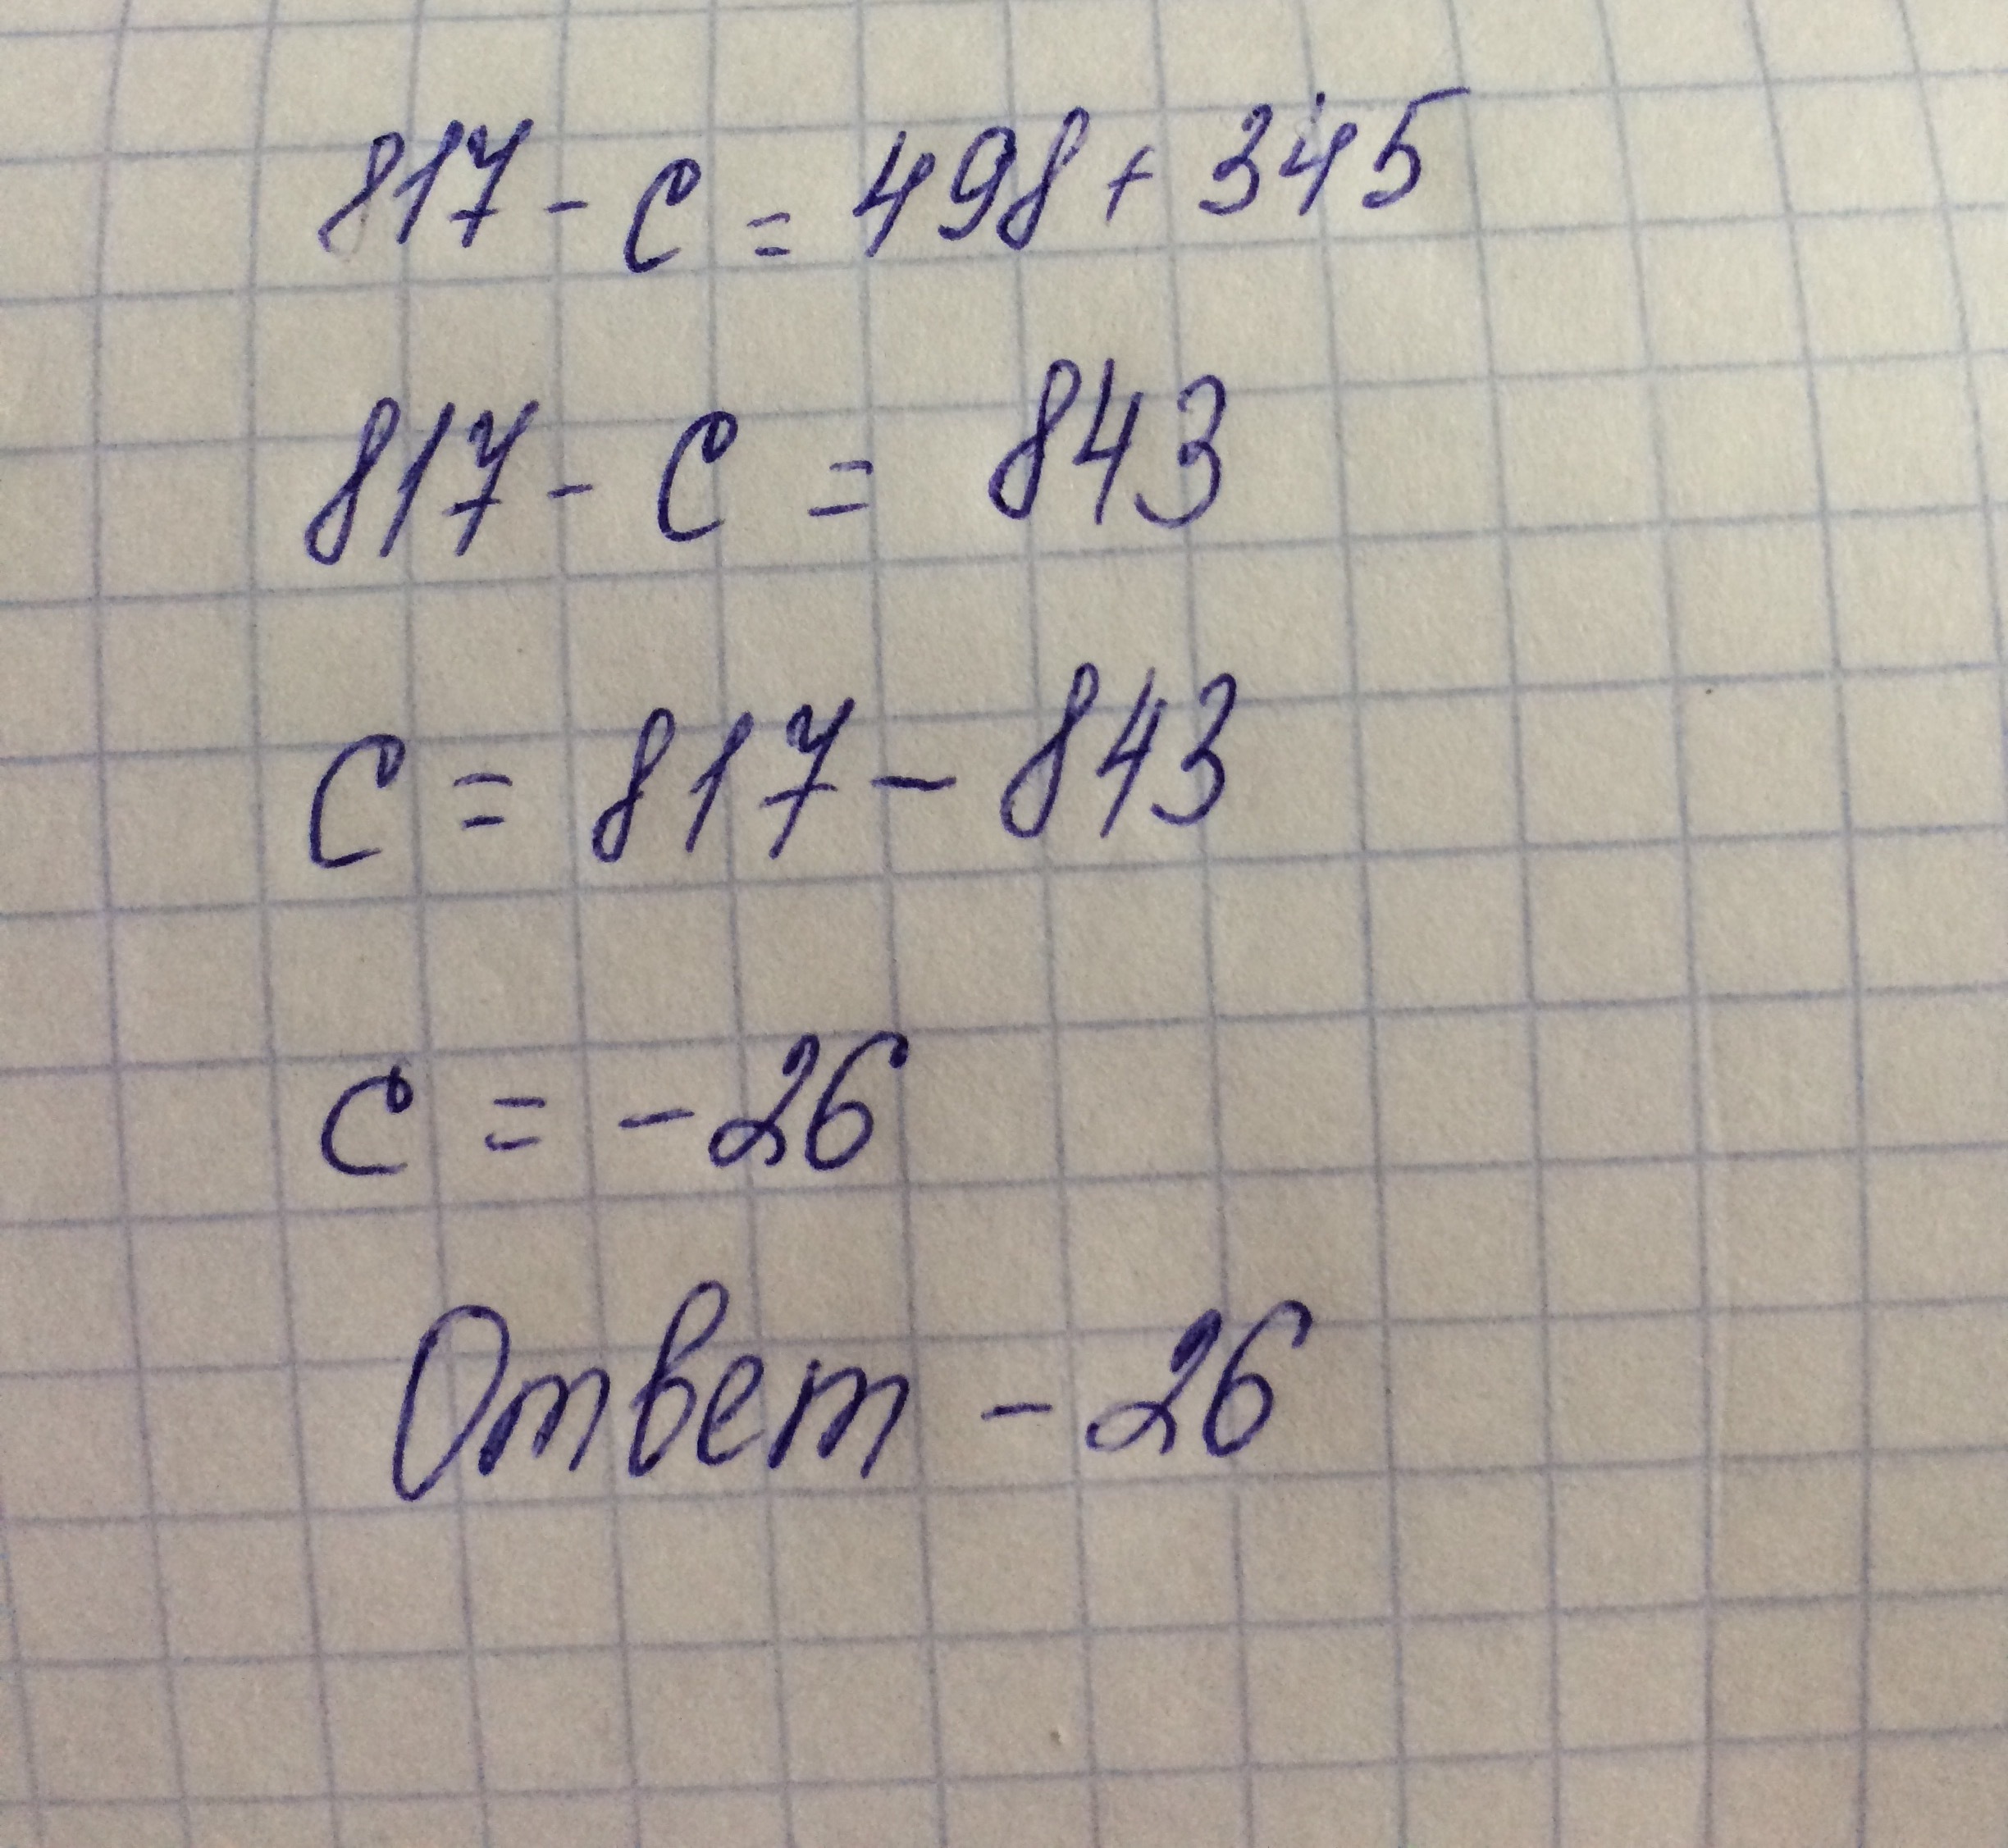 817 - c = 498 + 345
817 - c = 843
c = 817 - 843
c = - 26
Ответ - 26